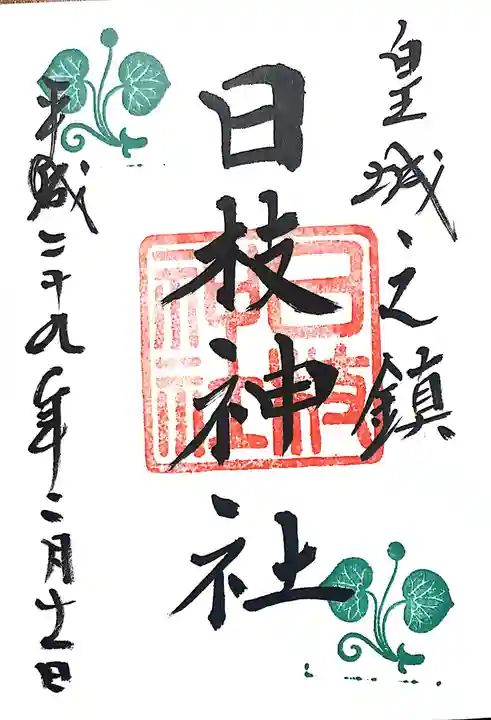 皇城之鎮
日枝神社
日枝神社
平成二十九年二月十一日